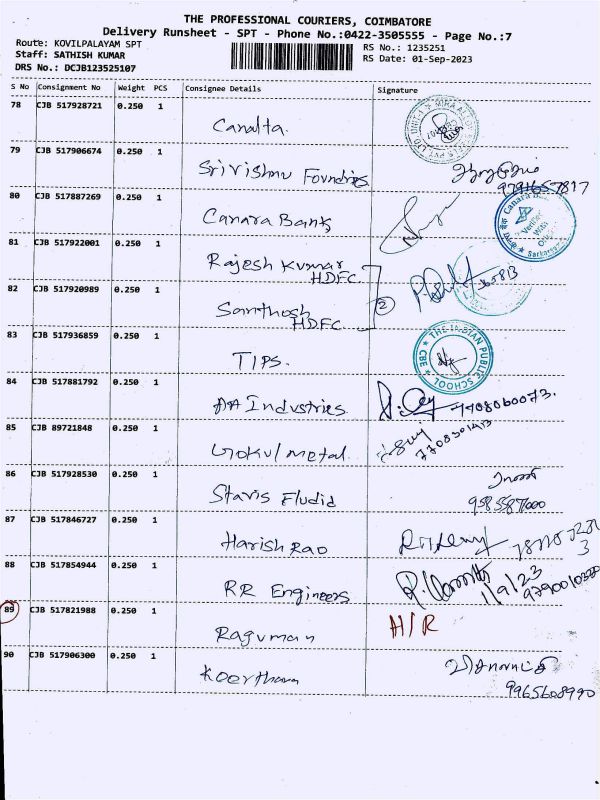 THE PROFESSIONAL COURIERS, COIMBATORE
Delivery Runsheet - SPT - Phone No.:0422-3505555 - Page No.:7
Route: KOVILPALAYAM SPT
RS No.: 1235251
Staff: SATHISH KUMAR
RS Date: 01-Sep-2023
DRS No.: DCJB123525107
S No Consignment No Weight PCS Consignee Details Signature
78 CJB 517928721 0.250 1
Canalta.
79 CJB 517906674 0.250 1
Srivishnu Foundries
9791657817
80 CJB 517887269 0.250 1
Canara Bank
81 CJB 517922001 0.250 1
Rajesh Kumar
HDFC
82 CJB 517920989 0.250 1
2
Santhosh
HDFC
83 CJB 517936859 0.250 1
THE INDIAN PUBLIC SCHOOL CBE
TIPS.
84 CJB 517881792 0.250 1
AA Industries
7708060073.
85 CJB 89721848 0.250 1
Gokul metal
86 CJB 517928530 0.250 1
Stavis Fludid
87 CJB 517846727 0.250 1
Harish Rao
88 CJB 517854944 0.250 1
RR Engineers
1/9/23
89 CJB 517821988 0.250 1
H/R
Raguman
90 CJB 517906300 0.250 1
Keerthana
9965608990